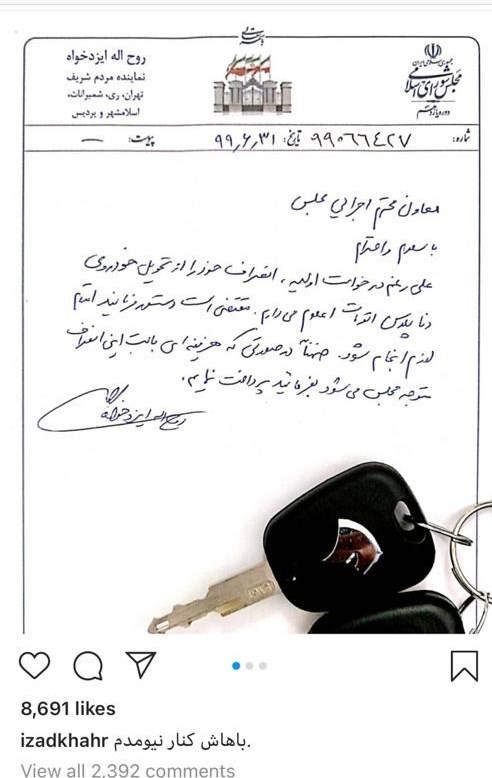 روح اله ایزدخواه
نماینده مردم شریف
تهران، ری، شمیرانات،
اسلامشهر و پردیس
جمهوری اسلامی ایران
مجلس شورای اسلامی
دوره یازدهم
شماره: ۹۹۰۶۶۴۲۷ تاریخ: ۹۹,۶,۳۱ پیوست: —
معاون محترم اجرایی مجلس
با سلام و احترام
علی رغم درخواست اولیه، انصراف خود را از تحویل خودروی
دنا پلاس اتومات اعلام می دارم. مقتضی است دستور فرمائید اقدام
لازم انجام شود. ضمناً در صورتی که هزینه ای بابت این انصراف
متوجه مجلس می شود بفرمائید پرداخت نمایم.
روح اله ایزدخواه
8,691 likes
izadkhahr باهاش کنار نیومدم.
View all 2,392 comments